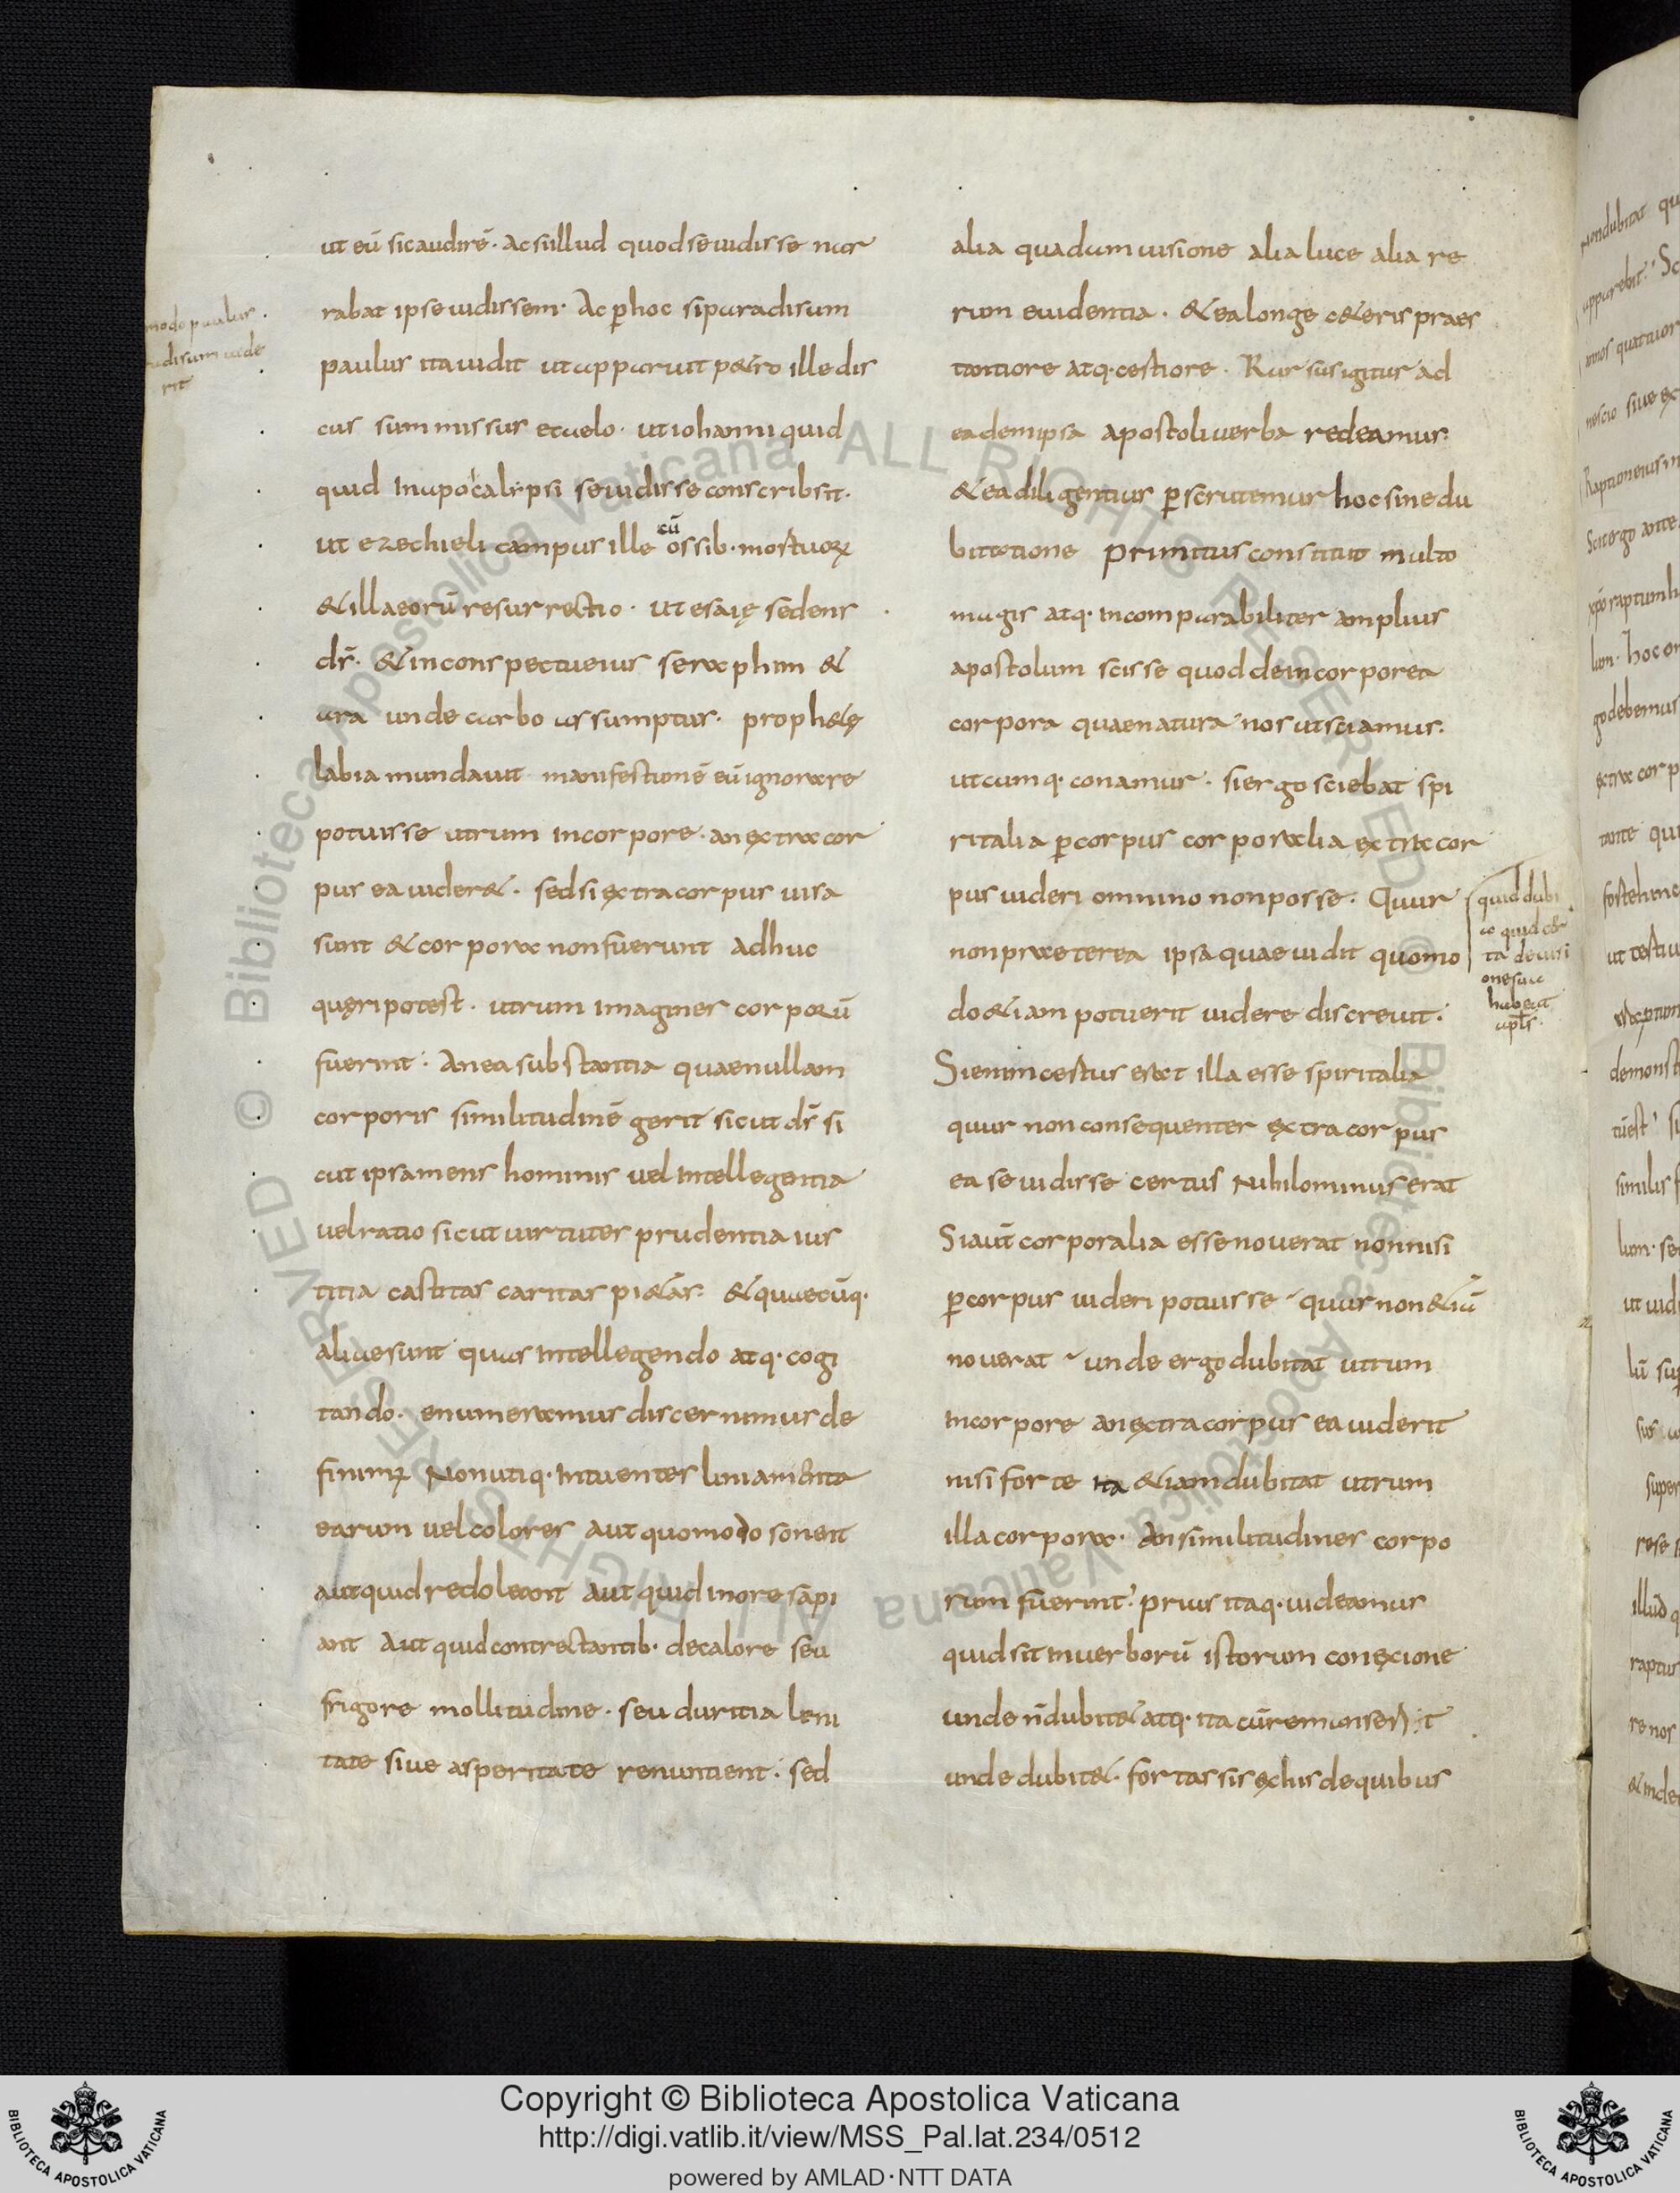 modo paulus
radisum uide
rit
ut eū sic audirē. Ac si illud quod se uidisse nar
rabat ipse uidissem. Ac ꝑ hoc si paradisum
paulus ita uidit ut apparuit p&ro ille dis
cus summissus e caelo. ut iohanni quid
quid In apocalipsi se uidisse conscribsit.
ut ezechieli campus ille cū ossib. mortuoꝝ
& illa eorū resurrectio. ut esaię sedens
dſ̄. & in conspectu eius seraphim &
ara unde carbo assumptus. proph&ę
labia mundauit manifestum ē eū ignorare
potuisse utrum In corpore. an extra cor
pus ea uider&. sed si extra corpus uisa
sunt & corpora non fuerunt adhuc
quęri potest. utrum imagines corporū
fuerint. An ea substantia quae nullam
corporis similitudinē gerit sicut dſ̄ si
cut ipsa mens hominis uel Intellegentia
uel ratio sicut uirtutes prudentia ius
titia castitas caritas pi&as. & quaecūq.
aliae sunt quas Intellegendo atq. cogi
tando. enumeramus discernimus de
finimꝰ Non utiq. Intuentes liniamenta
earum uel colores aut quomodo sonent
aut quid redoleant aut quid in ore sapi
ant Aut quid contrectantib. de calore seu
frigore mollitudine. seu duritia leni
tate siue asperitate renuntient. sed
alia quadam uisione alia luce alia re
rum euidentia. & ea longe c&eris praes
tantiore atq. certiore. Rursus igitur ad
eadem ipsa apostoli uerba redeamus
& ea diligentius ꝑscrutemur hoc sine du
bitatione primitus constituto multo
magis atq. Incomparabiliter amplius
apostolum scisse quod de incorporea
corpora quae natura nos ut sciamus.
utcumq. conamur. si ergo sciebat spi
ritalia ꝑ corpus corporalia extra cor
pus uideri omnino non posse. Quur
non praeterea ipsa quae uidit quomo
do &iam potuerit uidere discreuit.
Si enim certus erat illa esse spiritalia
quur non consequenter extra corpus
ea se uidisse certus Nihilominus erat
Si aut̄ corporalia esse nouerat nonnisi
ꝑ corpus uideri potuisse quur non &iā
nouerat unde ergo dubitat utrum
In corpore an extra corpus ea uiderit
nisi forte ita &iam dubitat utrum
illa corpora. An similitudines corpo
rum fuerint. prius itaq. uideamus
quid sit in uerborū istorum conexione
unde n̄ dubit& atq. ita cū
unde dubit&. fortassis ex his de quibus
quid dubi
& quid cer
ta de uisi
one sua
habeat
apl̄s.
Copyright © Biblioteca Apostolica Vaticana
http://digi.vatlib.it/view/MSS_Pal.lat.234/0512
powered by AMLAD·NTT DATA
BIBLIOTECA APOSTOLICA VATICANA
BIBLIOTECA APOSTOLICA VATICANA